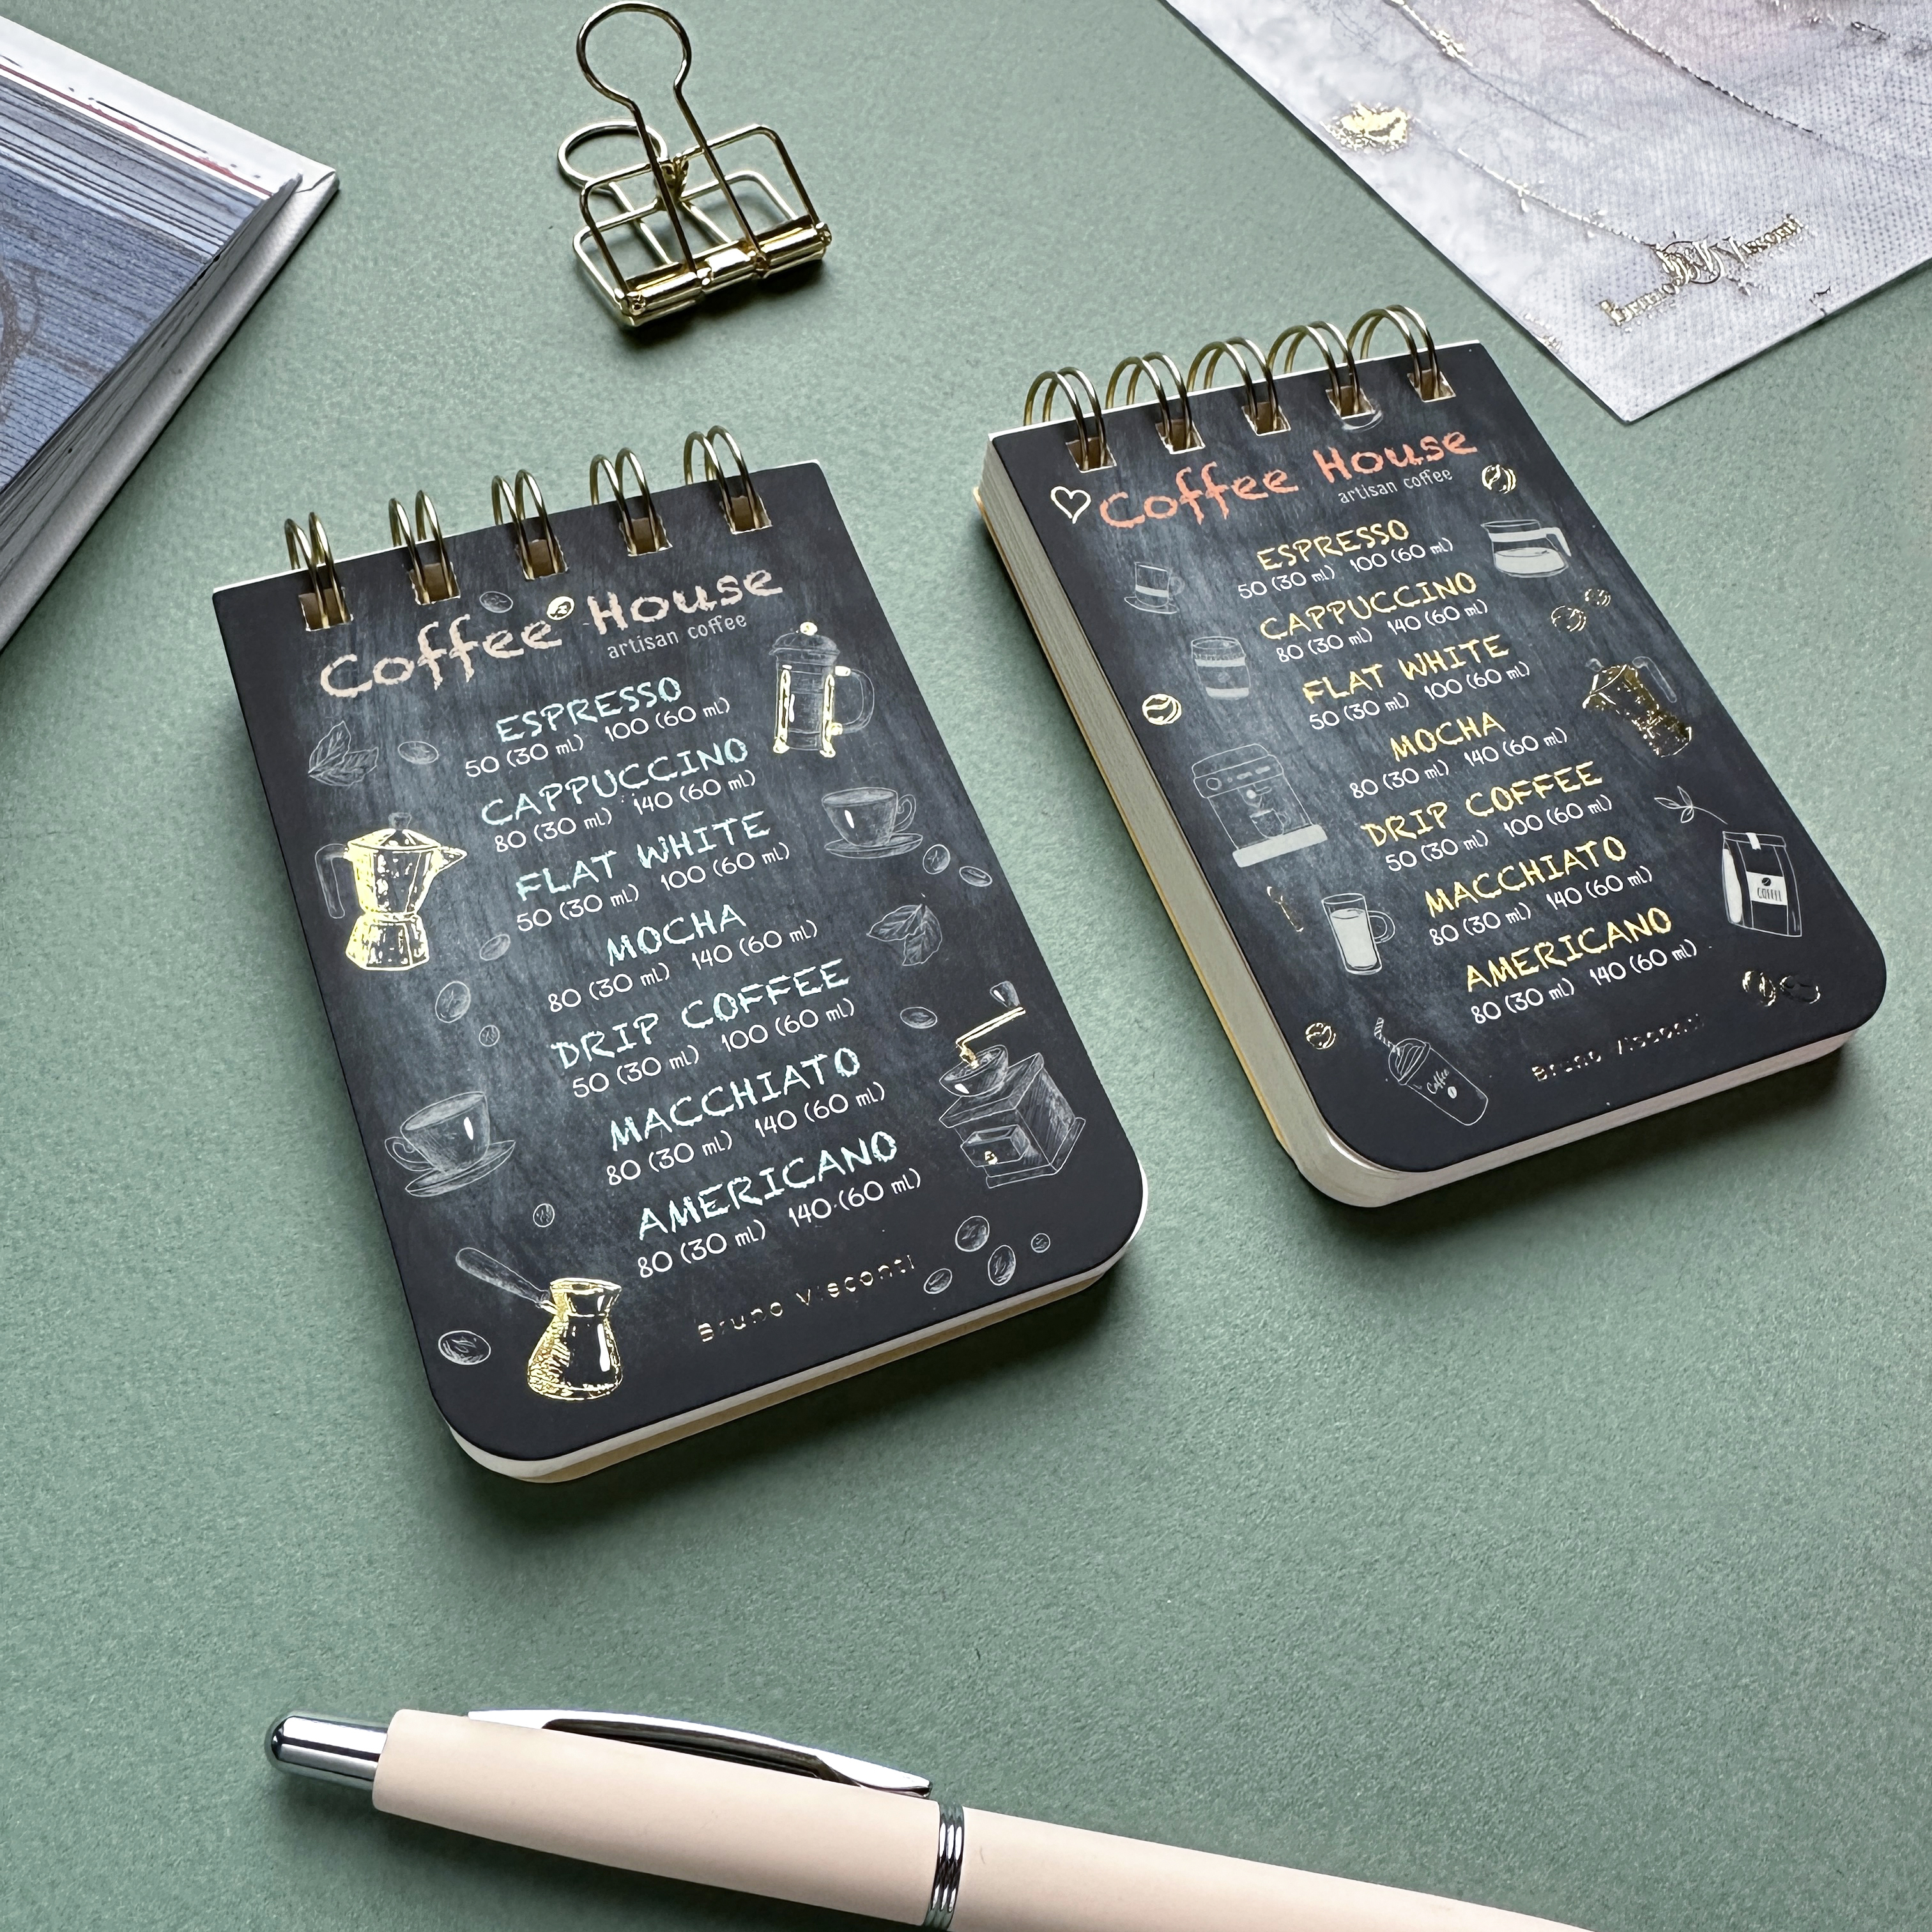 Coffee House
artisan coffee
ESPRESSO
50 (30 ml) 100 (60 ml)
CAPPUCCINO
80 (30 ml) 140 (60 ml)
FLAT WHITE
50 (30 ml) 100 (60 ml)
MOCHA
80 (30 ml) 140 (60 ml)
DRIP COFFEE
50 (30 ml) 100 (60 ml)
MACCHIATO
80 (30 ml) 140 (60 ml)
AMERICANO
80 (30 ml) 140 (60 ml)
Bruno Visconti
Coffee House
artisan coffee
ESPRESSO
50 (30 ml) 100 (60 ml)
CAPPUCCINO
80 (30 ml) 140 (60 ml)
FLAT WHITE
50 (30 ml) 100 (60 ml)
MOCHA
80 (30 ml) 140 (60 ml)
DRIP COFFEE
50 (30 ml) 100 (60 ml)
MACCHIATO
80 (30 ml) 140 (60 ml)
AMERICANO
80 (30 ml) 140 (60 ml)
COFFEE
Coffee
Bruno Visconti
Bruno Visconti